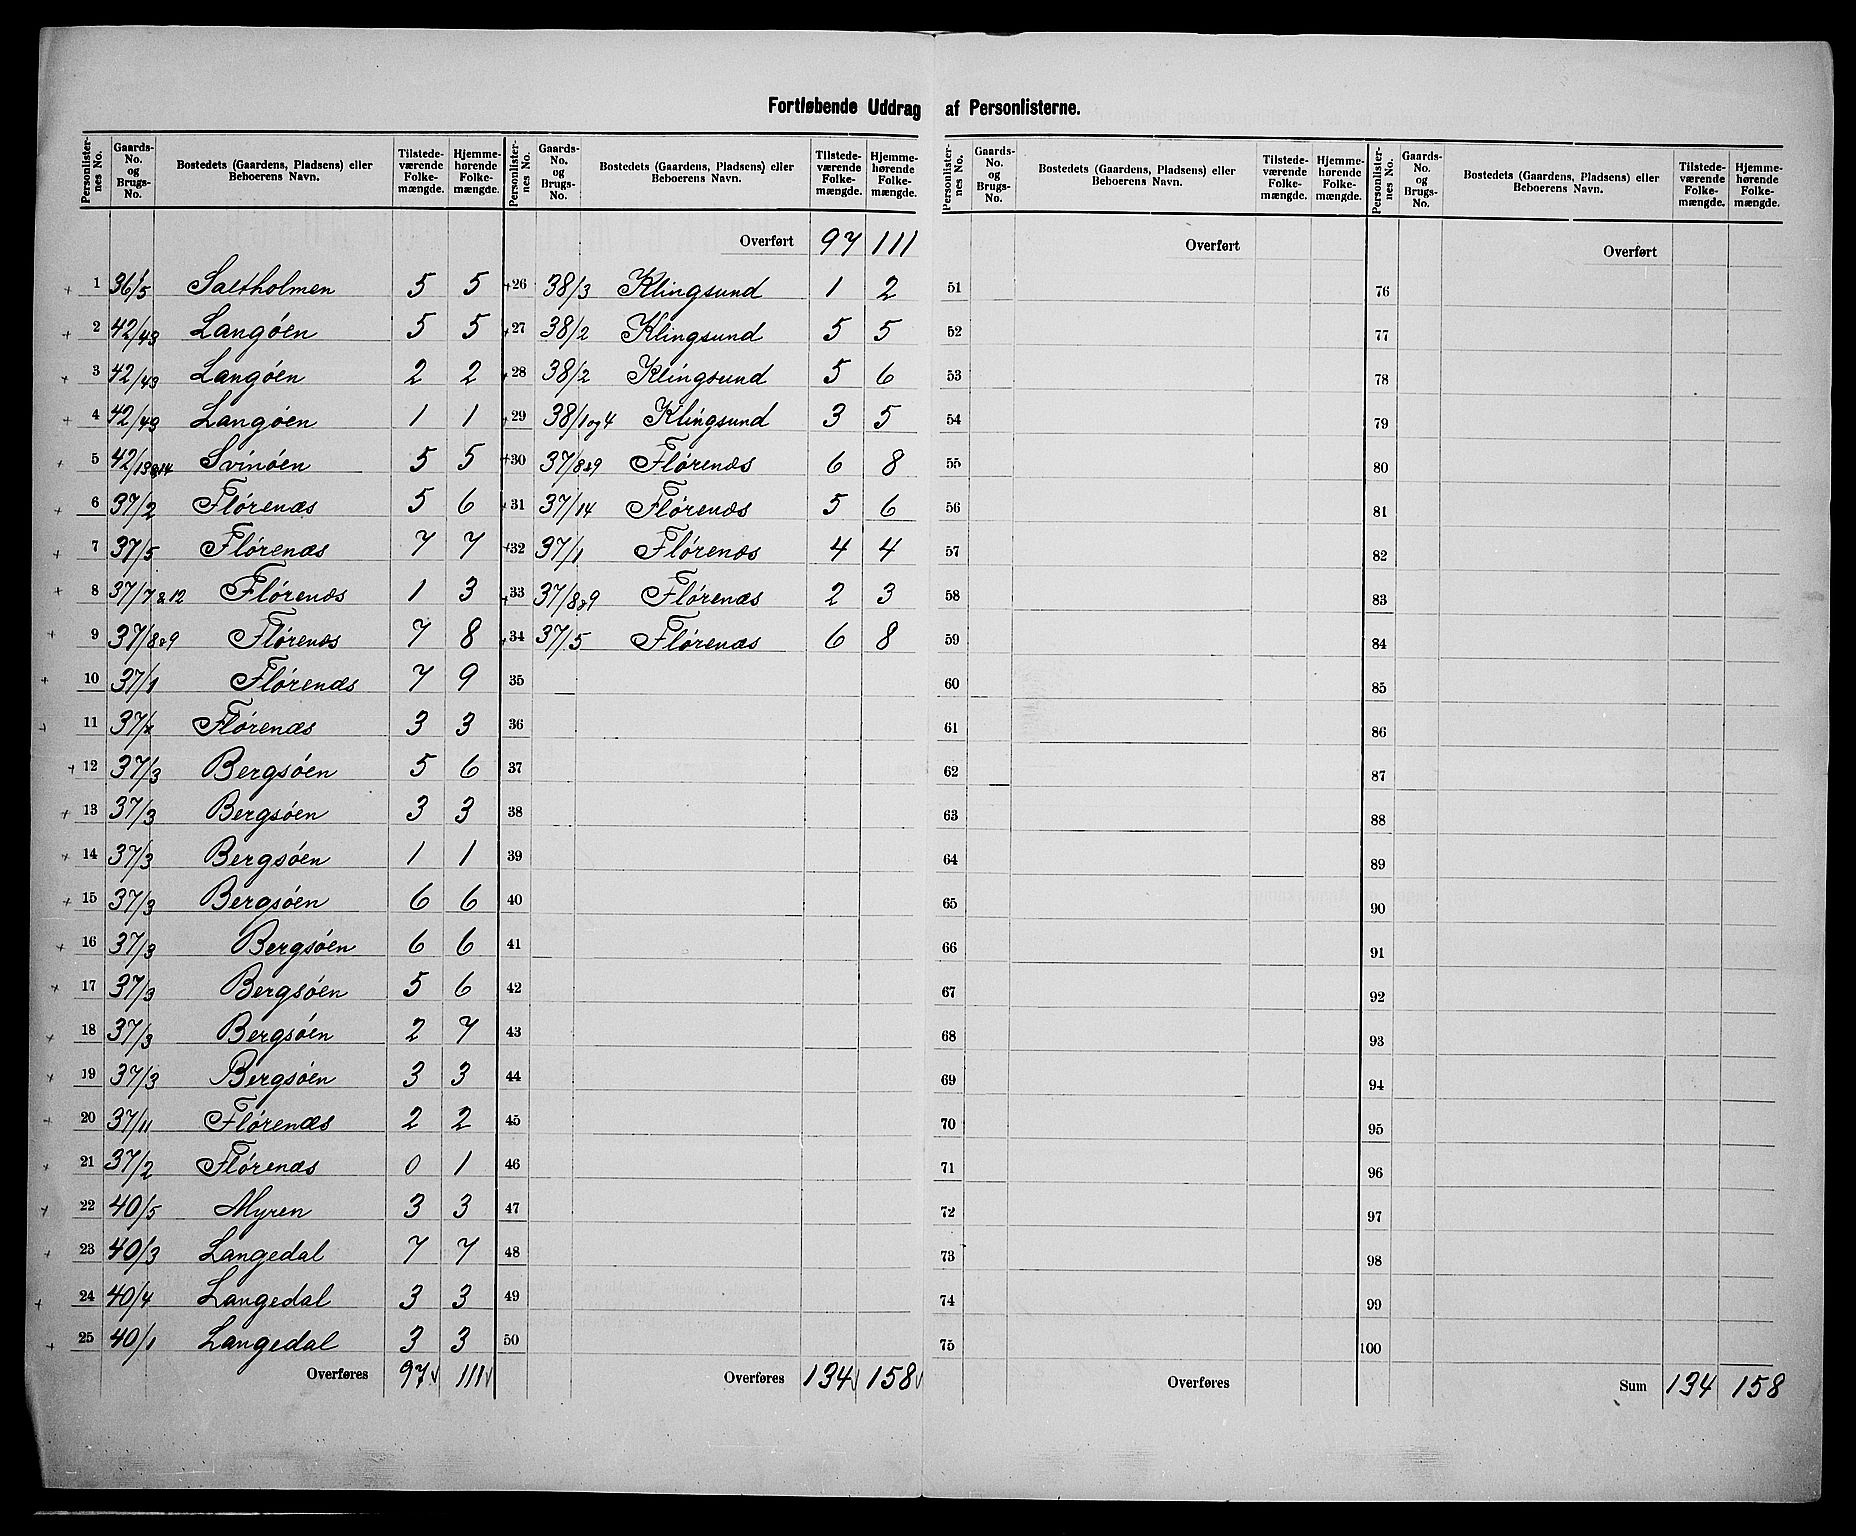 Fortløbende Uddrag af Personlisterne.
Personlister-nes No. | Gaards-No. og Brugs-No. | Bostedets (Gaardens, Pladsens) eller Beboerens Navn. | Tilstede-værende Folke-mængde. | Hjemme-hørende Folke-mængde.
1 36/5 Saltholmen 5 5
2 42/43 Langøen 5 5
3 42/43 Langøen 2 2
4 42/43 Langøen 1 1
5 42/13&14 Svinøen 5 5
6 37/2 Flørenæs 5 6
7 37/5 Flørenæs 7 7
8 37/7&12 Flørenæs 1 3
9 37/8&9 Flørenæs 7 8
10 37/1 Flørenæs 7 9
11 37/ Flørenæs 3 3
12 37/3 Bergsøen 5 6
13 37/3 Bergsøen 3 3
14 37/3 Bergsøen 1 1
15 37/3 Bergsøen 6 6
16 37/3 Bergsøen 6 6
17 37/3 Bergsøen 5 6
18 37/3 Bergsøen 2 7
19 37/3 Bergsøen 3 3
20 37/11 Flørenæs 2 2
21 37/2 Flørenæs 0 1
22 40/5 Myren 3 3
23 40/3 Langedal 7 7
24 40/4 Langedal 3 3
25 40/1 Langedal 3 3
Overføres 97 111
Personlister-nes No. | Gaards-No. og Brugs-No. | Bostedets (Gaardens, Pladsens) eller Beboerens Navn. | Tilstede-værende Folke-mængde. | Hjemme-hørende Folke-mængde.
Overført 97 111
26 38/3 Klingsund 1 2
27 38/2 Klingsund 5 5
28 38/2 Klingsund 5 6
29 38/1og4 Klingsund 3 5
30 37/8&9 Flørenæs 6 8
31 37/14 Flørenæs 5 6
32 37/1 Flørenæs 4 4
33 37/8&9 Flørenæs 2 3
34 37/5 Flørenæs 6 8
35
36
37
38
39
40
41
42
43
44
45
46
47
48
49
50
Overføres 134 158
Personlister-nes No. | Gaards-No. og Brugs-No. | Bostedets (Gaardens, Pladsens) eller Beboerens Navn. | Tilstede-værende Folke-mængde. | Hjemme-hørende Folke-mængde.
Overført
51
52
53
54
55
56
57
58
59
60
61
62
63
64
65
66
67
68
69
70
71
72
73
74
75
Overføres
Personlister-nes No. | Gaards-No. og Brugs-No. | Bostedets (Gaardens, Pladsens) eller Beboerens Navn. | Tilstede-værende Folke-mængde. | Hjemme-hørende Folke-mængde.
Overført
76
77
78
79
80
81
82
83
84
85
86
87
88
89
90
91
92
93
94
95
96
97
98
99
100
Sum 134 158